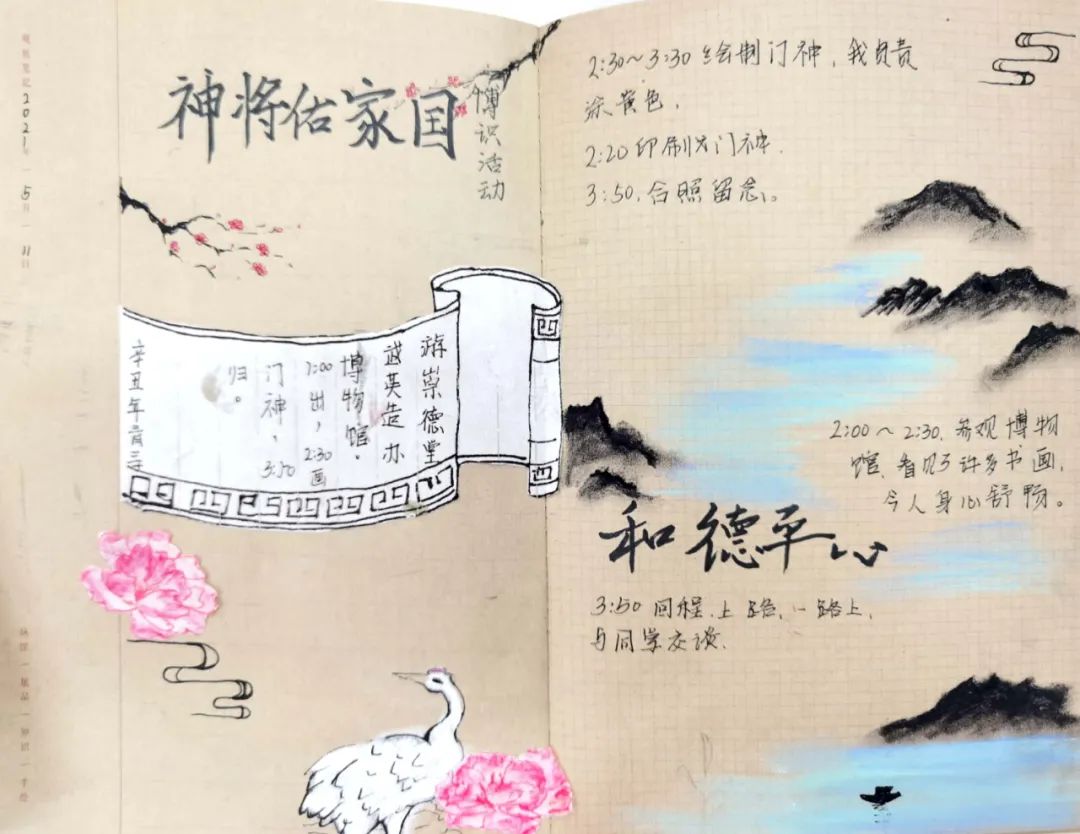 2021年 5月 11日
神将佑家国
博识活动
游崇德堂
武英造办
博物馆.
1:00出,2:30画
门神,3:50
归。
辛丑年
2:30~3:30 绘制门神,我负责
涂黄色,
2:20 印刷门神.
3:50,合照留念。
2:00~2:30,参观博物
馆,看见了许多书画,
令人身心舒畅。
和德平心
3:50 回程上路,一路上,
与同学交谈.